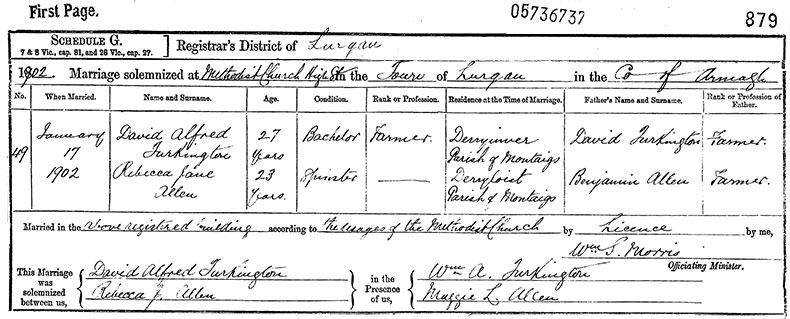 First Page.
05736737
879
SCHEDULE G.
7 & 8 Vic., cap. 81, and 26 Vic., cap. 27.
Registrar's District of Lurgan
1902. Marriage solemnized at Methodist Church High St in the Town of Lurgan in the Co of Armagh
No. When Married. Name and Surname. Age. Condition. Rank or Profession. Residence at the Time of Marriage. Father's Name and Surname. Rank or Profession of Father.
49
January 17 1902
David Alfred Turkington
27 years
Bachelor
Farmer.
Derryinver Parish of Montaigs
David Turkington
Farmer.
Rebecca Jane Allen
23 Years.
Spinster
Derrytoist Parish of Montaigs
Benjamin Allen
Farmer.
Married in the above registered building according to the usages of the Methodist Church by Licence by me,
Wm S. Morris
Officiating Minister.
This Marriage was solemnized between us,
David Alfred Turkington
Rebecca J. Allen
in the Presence of us,
Wm A. Turkington
Maggie L Allen